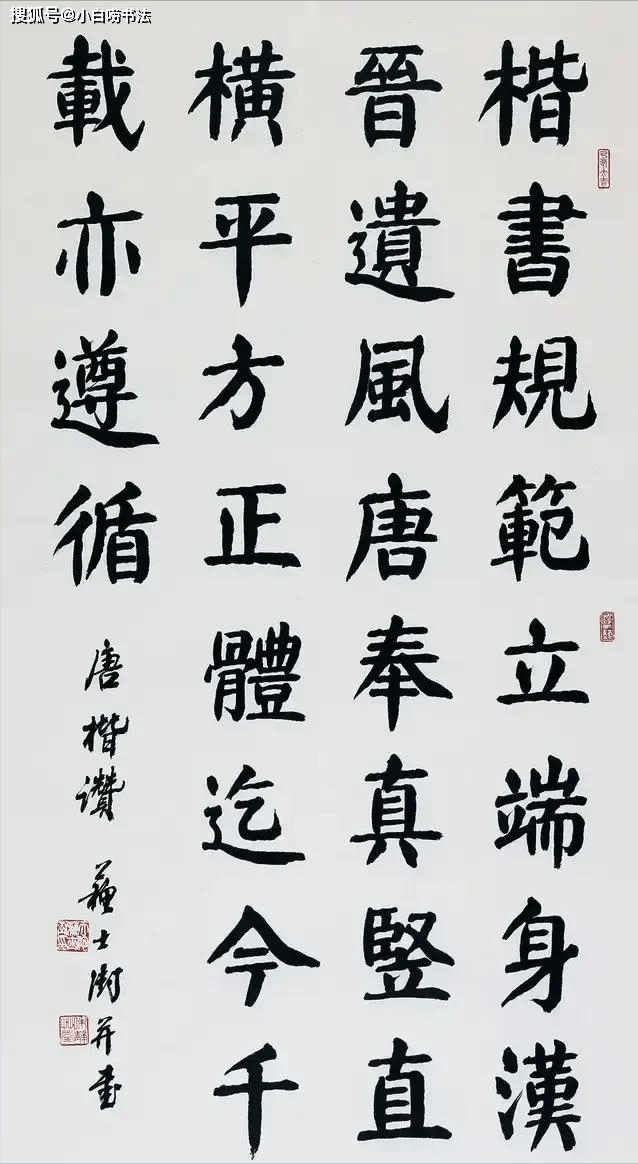 搜狐号@小白唠书法
楷書規範立端身漢
晉遺風唐奉真竪直
橫平方正體迄今千
載亦遵循
唐楷讚 蘇士澍并書